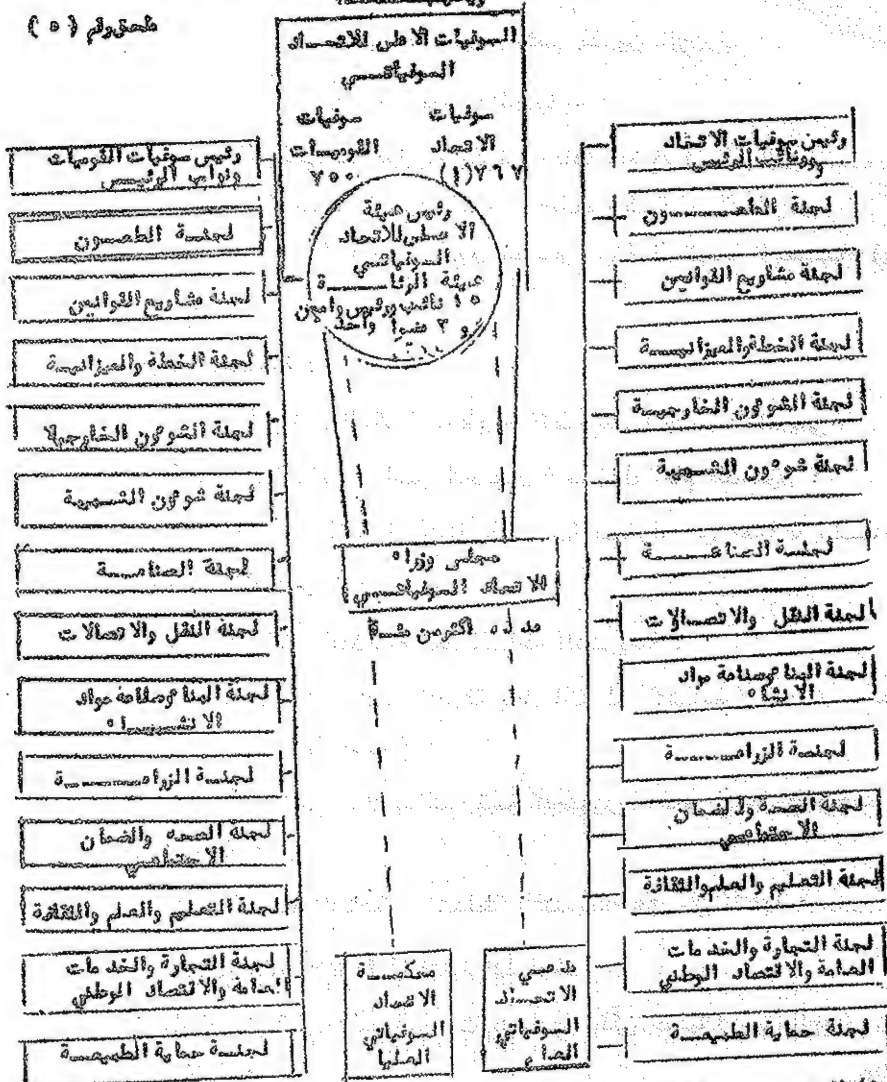 ملحق رقم ( ٥ )
السوفيات الاعلى للاتحـــاد
السوفياتـــي
سوفيات سوفيات
الاتحاد القوميـات
٧٦٧(١) ٧٥٠
رئيس هيئة
الاعلى للاتحاد
السوفياتـي
هيئة الرئاســـة
١٥ نائب رئيس وامين
و ٢ عضوا واحد
مجلس وزراء
الاتحاد السوفياتـــي
عدده اكثر من مئـة
محكمـــة
الاتحاد
السوفياتي
العليا
مدعـي
الاتحـــاد
السوفياتي
العام
رئيس سوفيات الاتحاد
ونواب الرئيس
لجنة الطعـــــون
لجنة مشاريع القوانين
لجنة الخطة والميزانيـــة
لجنة الشوءون الخارجيـة
لجنة شوءون الشبيبة
لجنـة الصناعـــــة
لجنة النقل والاتصـالات
لجنة البناء وصناعة مواد
الانشاء
لجنـة الزراعـــــة
لجنة الصحة والضمان
الاجتماعي
لجنة التعليم والعلم والثقافة
لجنة التجارة والخدمات
العامة والاقتصاد الوطني
لجنة حماية الطبيعـــة
رئيس سوفيات القوميات
ونواب الرئيـــس
لجنـــة الطعـــون
لجنة مشاريع القوانين
لجنة الخطة والميزانيـــة
لجنة الشوءون الخارجية
لجنة شوءون الشبيبة
لجنة الصناعـــة
لجنة النقل والاتصالات
لجنة البناء وصناعة مواد
الانشـــاء
لجنـة الزراعـــــة
لجنة الصحه والضمان
الاجتماعي
لجنة التعليم والعلم والثقافة
لجنة التجارة والخدمات
العامة والاقتصاد الوطني
لجنـة حماية الطبيعـــة